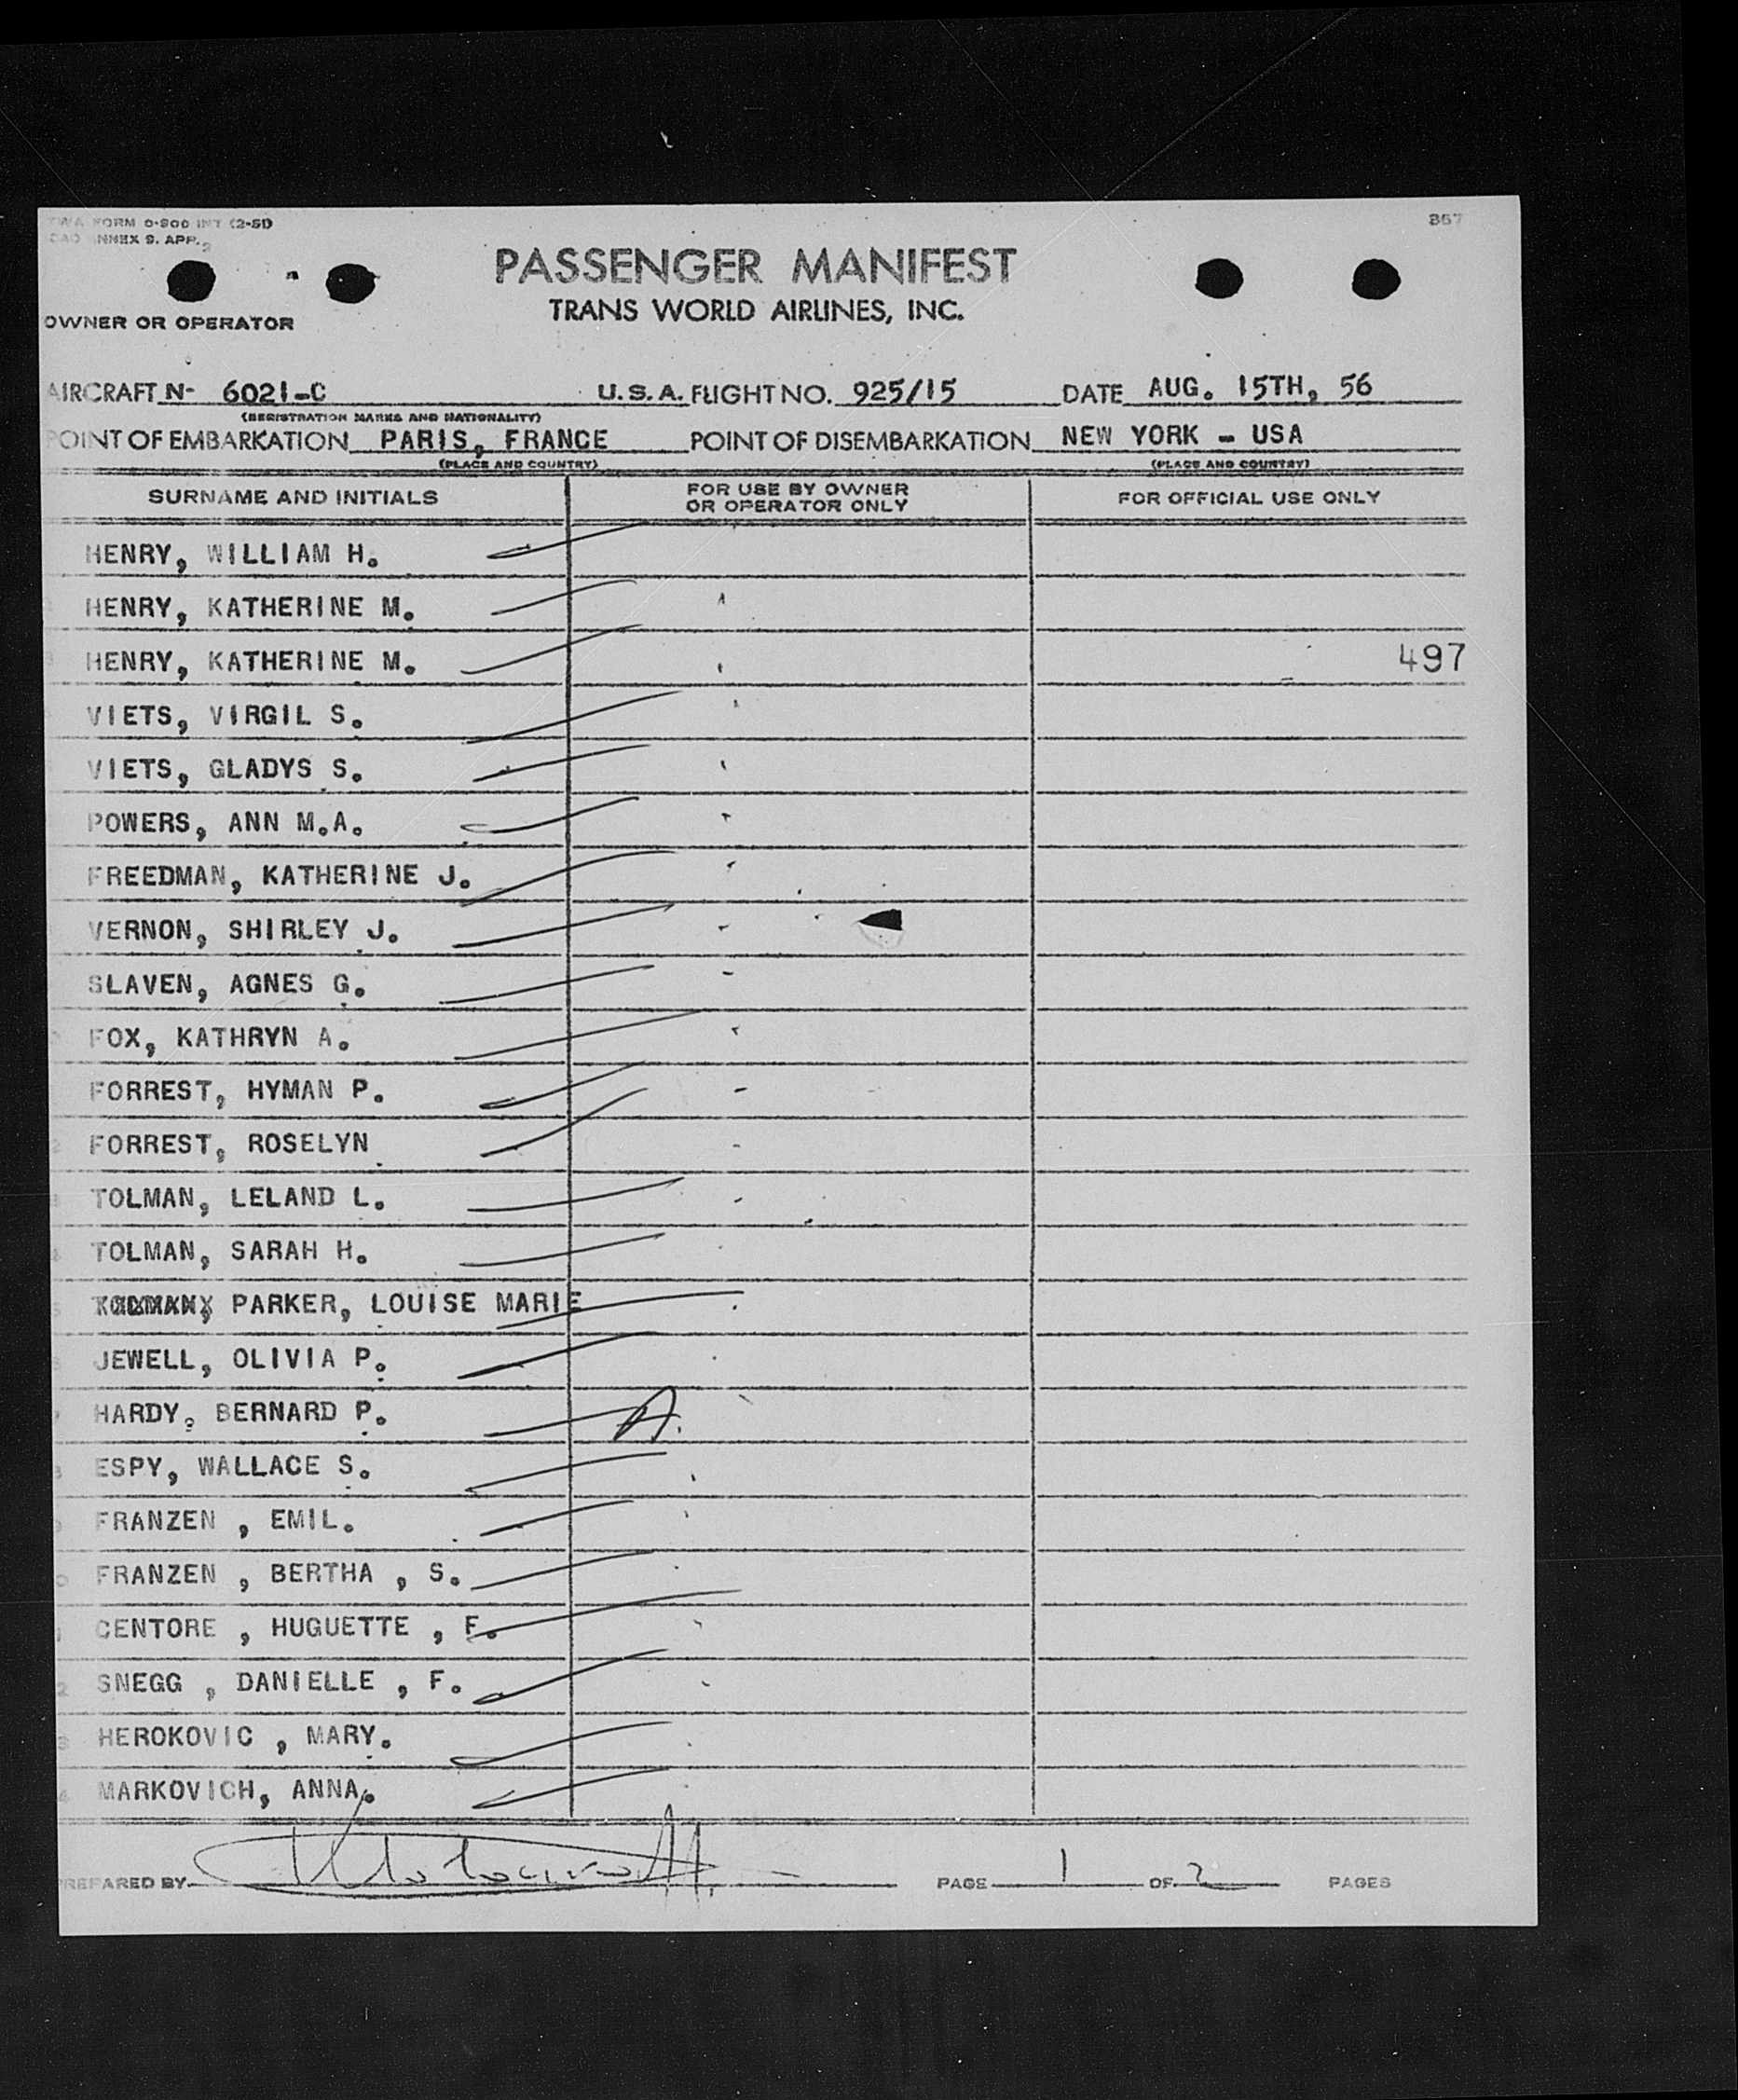 TWA FORM O-800 INT (2-51)
ICAO ANNEX 9. APP. 2
867
PASSENGER MANIFEST
TRANS WORLD AIRLINES, INC.
OWNER OR OPERATOR
AIRCRAFT N- 6021-C U.S.A. FLIGHT NO. 925/15 DATE AUG. 15TH, 56
(REGISTRATION MARKS AND NATIONALITY)
POINT OF EMBARKATION PARIS, FRANCE POINT OF DISEMBARKATION NEW YORK - USA
(PLACE AND COUNTRY) (PLACE AND COUNTRY)
SURNAME AND INITIALS FOR USE BY OWNER OR OPERATOR ONLY FOR OFFICIAL USE ONLY
HENRY, WILLIAM H.
HENRY, KATHERINE M.
HENRY, KATHERINE M. 497
VIETS, VIRGIL S.
VIETS, GLADYS S.
POWERS, ANN M.A.
FREEDMAN, KATHERINE J.
VERNON, SHIRLEY J.
SLAVEN, AGNES G.
FOX, KATHRYN A.
FORREST, HYMAN P.
FORREST, ROSELYN
TOLMAN, LELAND L.
TOLMAN, SARAH H.
PARKER, LOUISE MARIE
JEWELL, OLIVIA P.
HARDY, BERNARD P.
ESPY, WALLACE S.
FRANZEN , EMIL.
FRANZEN , BERTHA , S.
CENTORE , HUGUETTE , F.
SNEGG , DANIELLE , F.
HEROKOVIC , MARY.
MARKOVICH, ANNA.
PREPARED BY PAGE 1 OF 2 PAGES